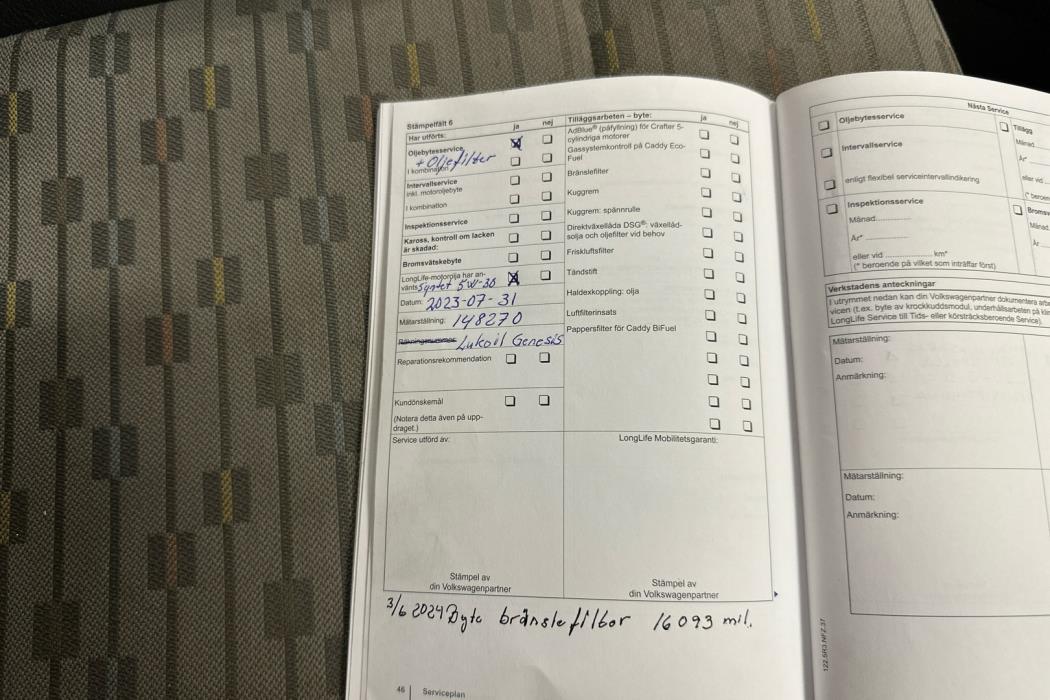 Stämpelfält 6
Har utförts: ja nej
Oljebytesservice
+ Oljefilter
I kombination
Intervallservice
inkl. motoroljebyte
I kombination
Inspektionsservice
Kaross, kontroll om lacken
är skadad:
Bromsvätskebyte
LongLife-motorolja har an-
vänts Syntet 5W-30
Datum: 2023-07-31
Mätarställning: 148270
Lukoil Genesis
Reparationsrekommendation
Kundönskemål
(Notera detta även på upp-
draget.)
Service utförd av:
Stämpel av
din Volkswagenpartner
Tilläggsarbeten – byte: ja nej
AdBlue® (påfyllning) för Crafter 5-
cylindriga motorer
Gassystemkontroll på Caddy Eco-
Fuel
Bränslefilter
Kuggrem
Kuggrem: spännrulle
Direktväxellåda DSG®: växellåd-
solja och oljefilter vid behov
Friskluftsfilter
Tändstift
Haldexkoppling: olja
Luftfilterinsats
Pappersfilter för Caddy BiFuel
LongLife Mobilitetsgaranti:
Stämpel av
din Volkswagenpartner
3/6 2024 Byte bränslefilter 16093 mil.
46 Serviceplan
Nästa Service
Oljebytesservice
Intervallservice
enligt flexibel serviceintervallindikering
Inspektionsservice
Månad
År*
eller vid km*
(* beroende på vilket som inträffar först)
Tillägg
Månad
År*
eller vid
(* beroen
Bromsv
Månad
År
Verkstadens anteckningar
I utrymmet nedan kan din Volkswagenpartner dokumentera
vicen (t.ex. byte av krockkuddsmodul, underhållsarbeten på
LongLife Service till Tids- eller körsträcksberoende Service).
Mätarställning:
Datum:
Anmärkning:
Mätarställning:
Datum:
Anmärkning:
122.5R3.NFZ.37